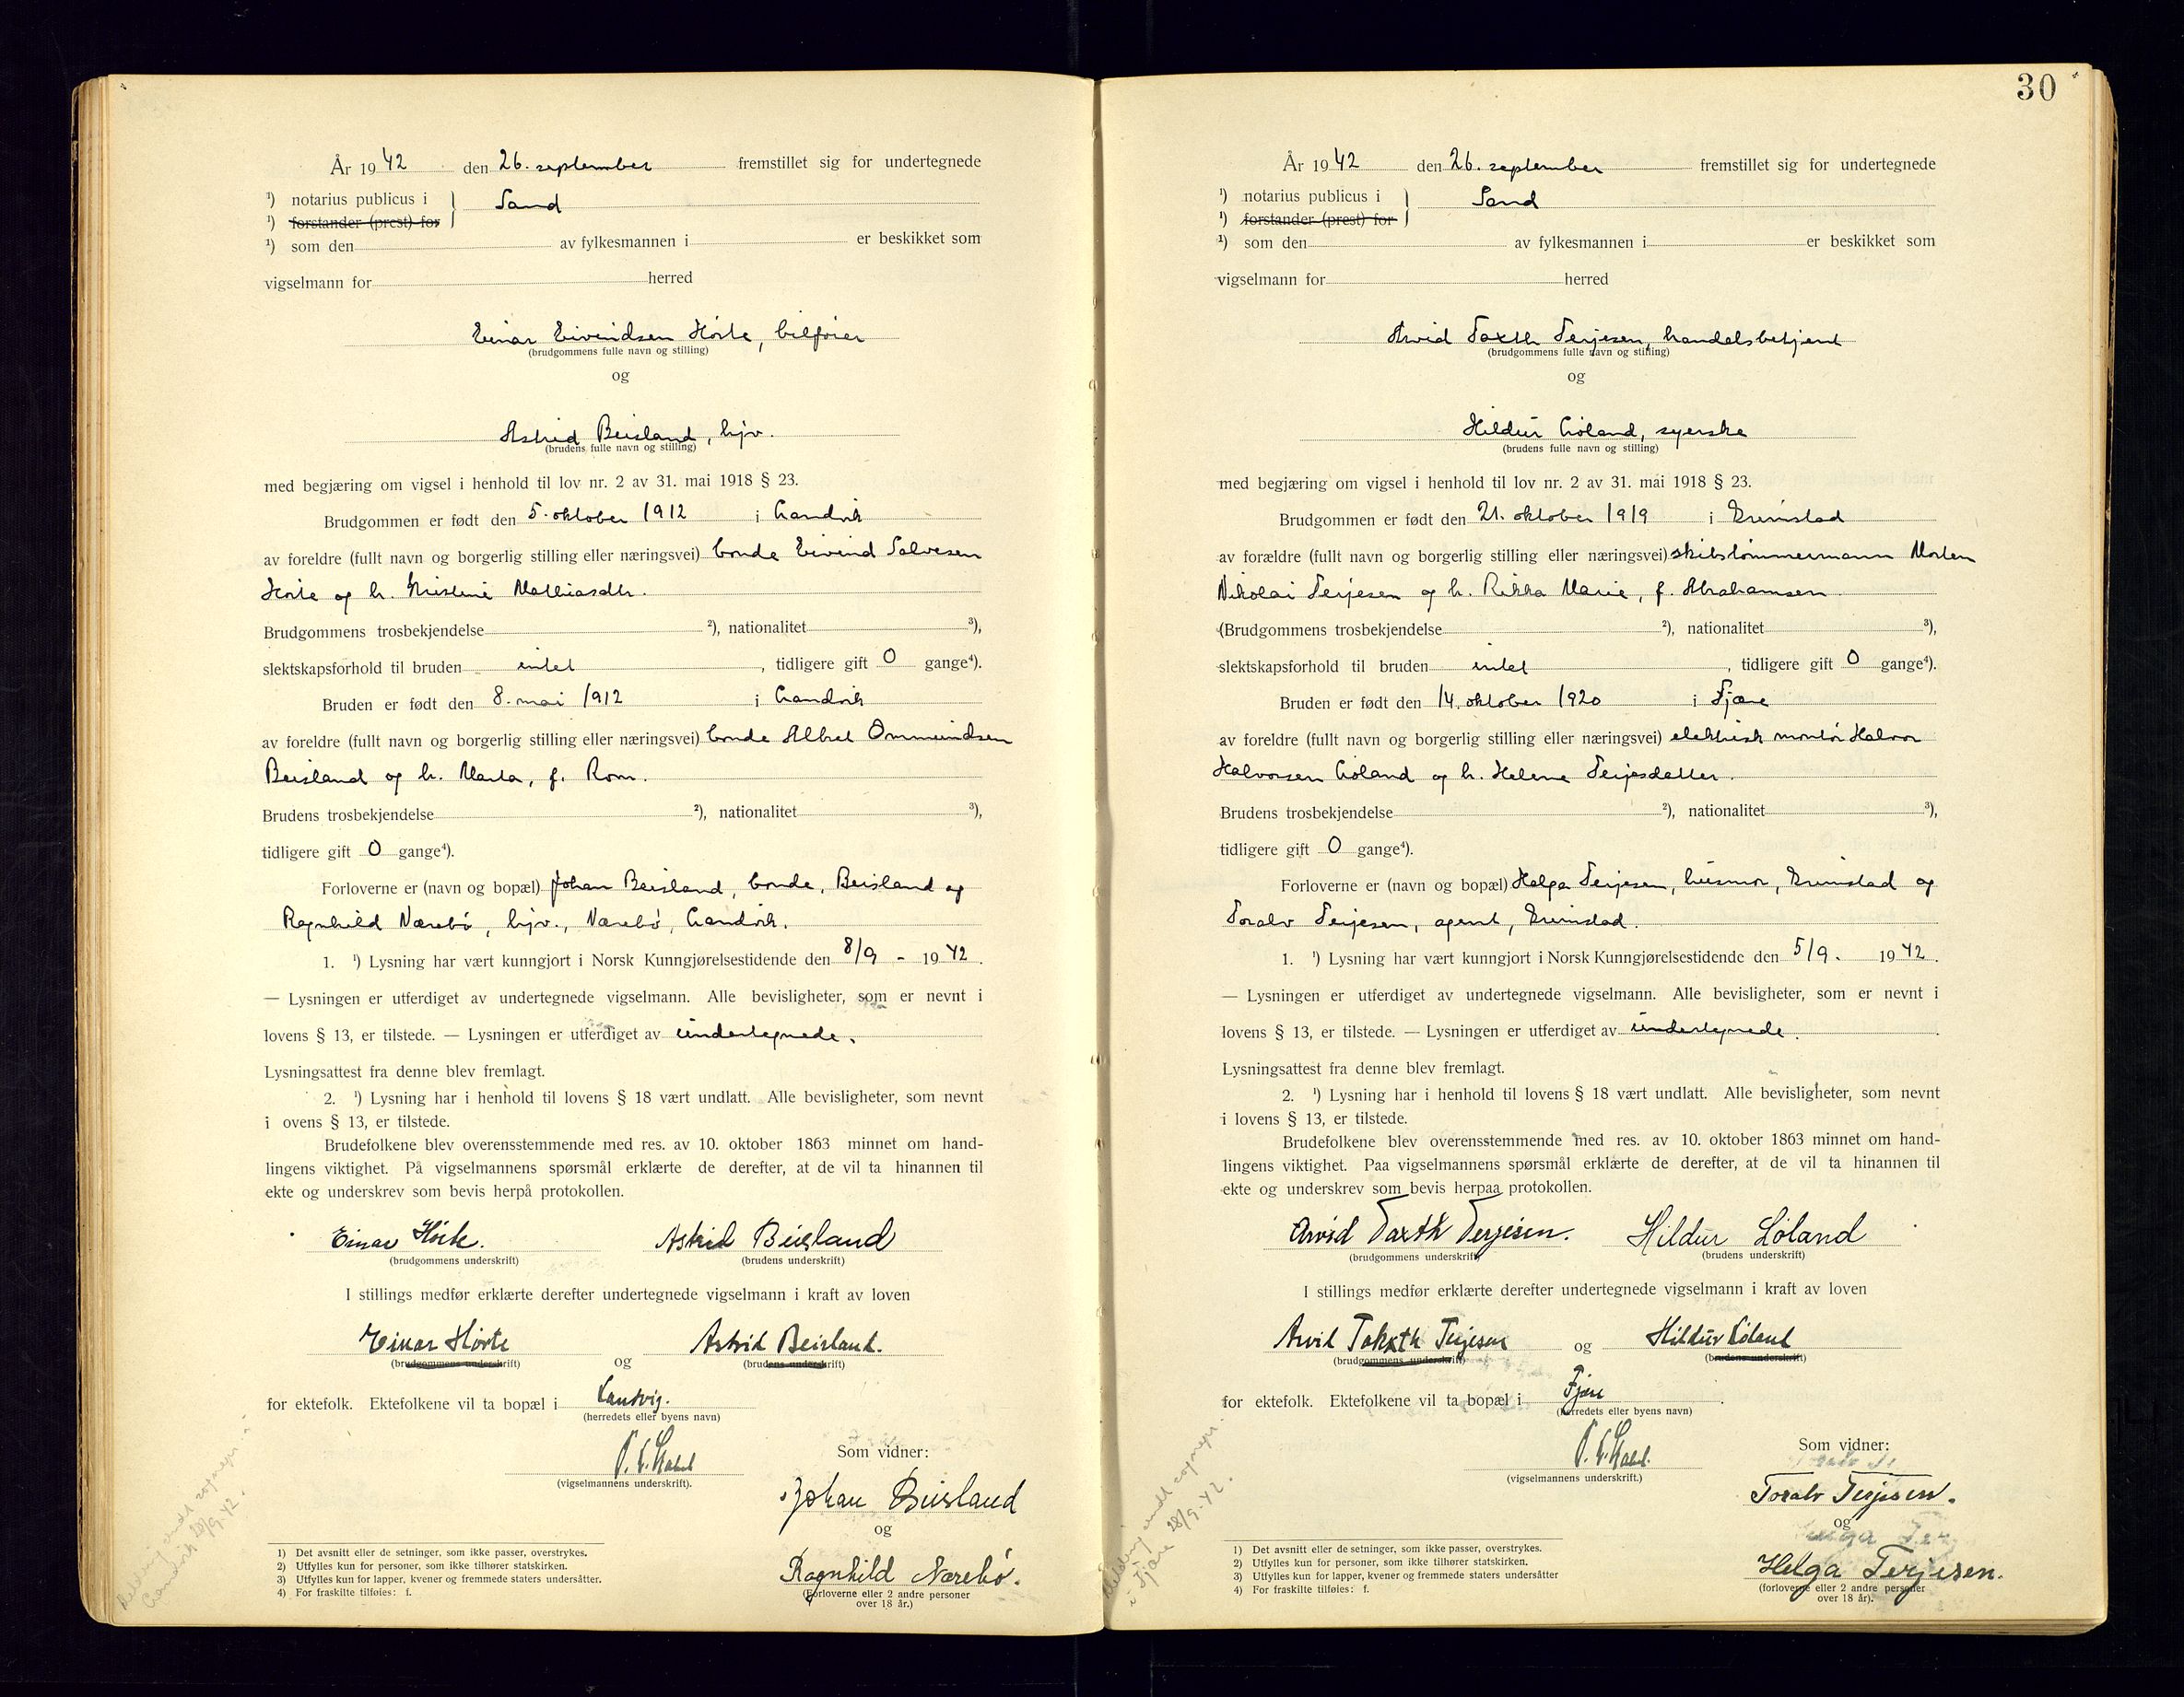 År 1942 den 26. september fremstillet sig for undertegnede
¹) notarius publicus i } Sand
¹) forstander (prest) for
¹) som den av fylkesmannen i er beskikket som
vigselmann for herred
Einar Eivindsen Hörte, bilförer
(brudgommens fulle navn og stilling)
og
Astrid Beisland, hjv.
(brudens fulle navn og stilling)
med begjæring om vigsel i henhold til lov nr. 2 av 31. mai 1918 § 23.
Brudgommen er født den 5. oktober 1912 i Landvik
av foreldre (fullt navn og borgerlig stilling eller næringsvei) bonde Eivind Salvesen
Hörte og h. Kristine Mathiasdtr.
Brudgommens trosbekjendelse ²), nationalitet ³),
slektskapsforhold til bruden intet, tidligere gift 0 gange⁴).
Bruden er født den 8. mai 1912 i Landvik
av foreldre (fullt navn og borgerlig stilling eller næringsvei) bonde Albret Ommundsen
Beisland og h. Marta, f. Rom.
Brudens trosbekjendelse ²), nationalitet ³),
tidligere gift 0 gange⁴).
Forloverne er (navn og bopæl) Johan Beisland, bonde, Beisland og
Ragnhild Nærebö, hjv., Nærebö, Landvik.
1. ¹) Lysning har vært kunngjort i Norsk Kunngjørelsestidende den 8/9 - 1942.
— Lysningen er utferdiget av undertegnede vigselmann. Alle bevisligheter, som er nevnt i
lovens § 13, er tilstede. — Lysningen er utferdiget av undertegnede.
Lysningsattest fra denne blev fremlagt.
2. ¹) Lysning har i henhold til lovens § 18 vært undlatt. Alle bevisligheter, som nevnt
i ovens § 13, er tilstede.
Brudefolkene blev overensstemmende med res. av 10. oktober 1863 minnet om hand-
lingens viktighet. På vigselmannens spørsmål erklærte de derefter, at de vil ta hinannen til
ekte og underskrev som bevis herpå protokollen.
Einar Hörte. Astrid Beisland
(brudgommens underskrift) (brudens underskrift)
I stillings medfør erklærte derefter undertegnede vigselmann i kraft av loven
Einar Hörte og Astrid Beisland.
(brudgommens underskrift) (brudens underskrift)
for ektefolk. Ektefolkene vil ta bopæl i Landvig.
(herredets eller byens navn)
(vigselmannens underskrift).
Som vidner:
Johan Beisland
og
Ragnhild Nærebö.
(Forloverne eller 2 andre personer
over 18 år.)
1) Det avsnitt eller de setninger, som ikke passer, overstrykes.
2) Utfylles kun for personer, som ikke tilhører statskirken.
3) Utfylles kun for lapper, kvener og fremmede staters undersåtter.
4) For fraskilte tilføies: f.
Melding sendt sognepr. i
Landvik 28/9-42.
30
År 1942 den 26. september fremstillet sig for undertegnede
¹) notarius publicus i } Sand
¹) forstander (prest) for
¹) som den av fylkesmannen i er beskikket som
vigselmann for herred
Arvid Taxth Terjesen, handelsbetjent
(brudgommens fulle navn og stilling)
og
Hildur Löland, syerske
(brudens fulle navn og stilling)
med begjæring om vigsel i henhold til lov nr. 2 av 31. mai 1918 § 23.
Brudgommen er født den 21. oktober 1919 i Grimstad
av forældre (fullt navn og borgerlig stilling eller næringsvei) skibstömmermann Morten
Nikolai Terjesen og h. Rikka Marie, f. Abrahamsen
(Brudgommens trosbekjendelse ²), nationalitet ³),
slektskapsforhold til bruden intet, tidligere gift 0 gange⁴).
Bruden er født den 14. oktober 1920 i Fjære
av foreldre (fullt navn og borgerlig stilling eller næringsvei) elektrisk montör Halvor
Halvorsen Löland og h. Helene Terjesdatter.
Brudens trosbekjendelse ²), nationalitet ³),
tidligere gift 0 gange⁴).
Forloverne er (navn og bopæl) Helga Terjesen, husmor, Grimstad og
Toralv Terjesen, agent, Grimstad.
1. ¹) Lysning har vært kunngjort i Norsk Kunngjørelsestidende den 5/9. 1942.
— Lysningen er utferdiget av undertegnede vigselmann. Alle bevisligheter, som er nevnt i
lovens § 13, er tilstede. — Lysningen er utferdiget av undertegnede.
Lysningsattest fra denne blev fremlagt.
2. ¹) Lysning har i henhold til lovens § 18 vært undlatt. Alle bevisligheter, som nevnt
i lovens § 13, er tilstede.
Brudefolkene blev overensstemmende med res. av 10. oktober 1863 minnet om hand-
lingens viktighet. Paa vigselmannens spørsmål erklærte de derefter, at de vil ta hinannen til
ekte og underskrev som bevis herpaa protokollen.
Arvid Taxth Terjesen. Hildur Löland
(brudgommens underskrift) (brudens underskrift)
I stillings medfør erklærte derefter undertegnede vigselmann i kraft av loven
Arvid Takxth Terjesen og Hildur Löland
(brudgommens underskrift) (brudens underskrift)
for ektefolk. Ektefolkene vil ta bopæl i Fjære.
(herredets eller byens navn)
(vigselmannens underskrift.)
Som vidner:
Toralv Terjesen.
og
Helga Terjesen.
(forloverne eller 2 andre personer
over 18 år).
1) Det avsnitt eller de setninger, som ikke passer, overstrykes.
2) Utfylles kun for personer, som ikke tilhører statskirken.
3) Utfylles kun for lapper, kvener og fremmede staters undersåtter
4) For fraskilte tilføies: f.
Melding sendt sognepr.
i Fjære 28/9-42.